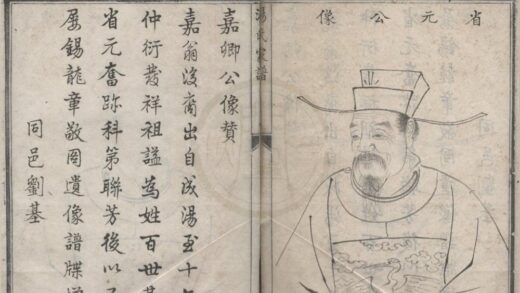 省元公像
湯氏家譜
嘉卿公像贊
嘉翁後裔出自成湯至十
仲衍發祥祖謚為姓百世
省元奮跡科第聯芳後以
屢錫龍章敬罔遺像譜牒
同邑劉基